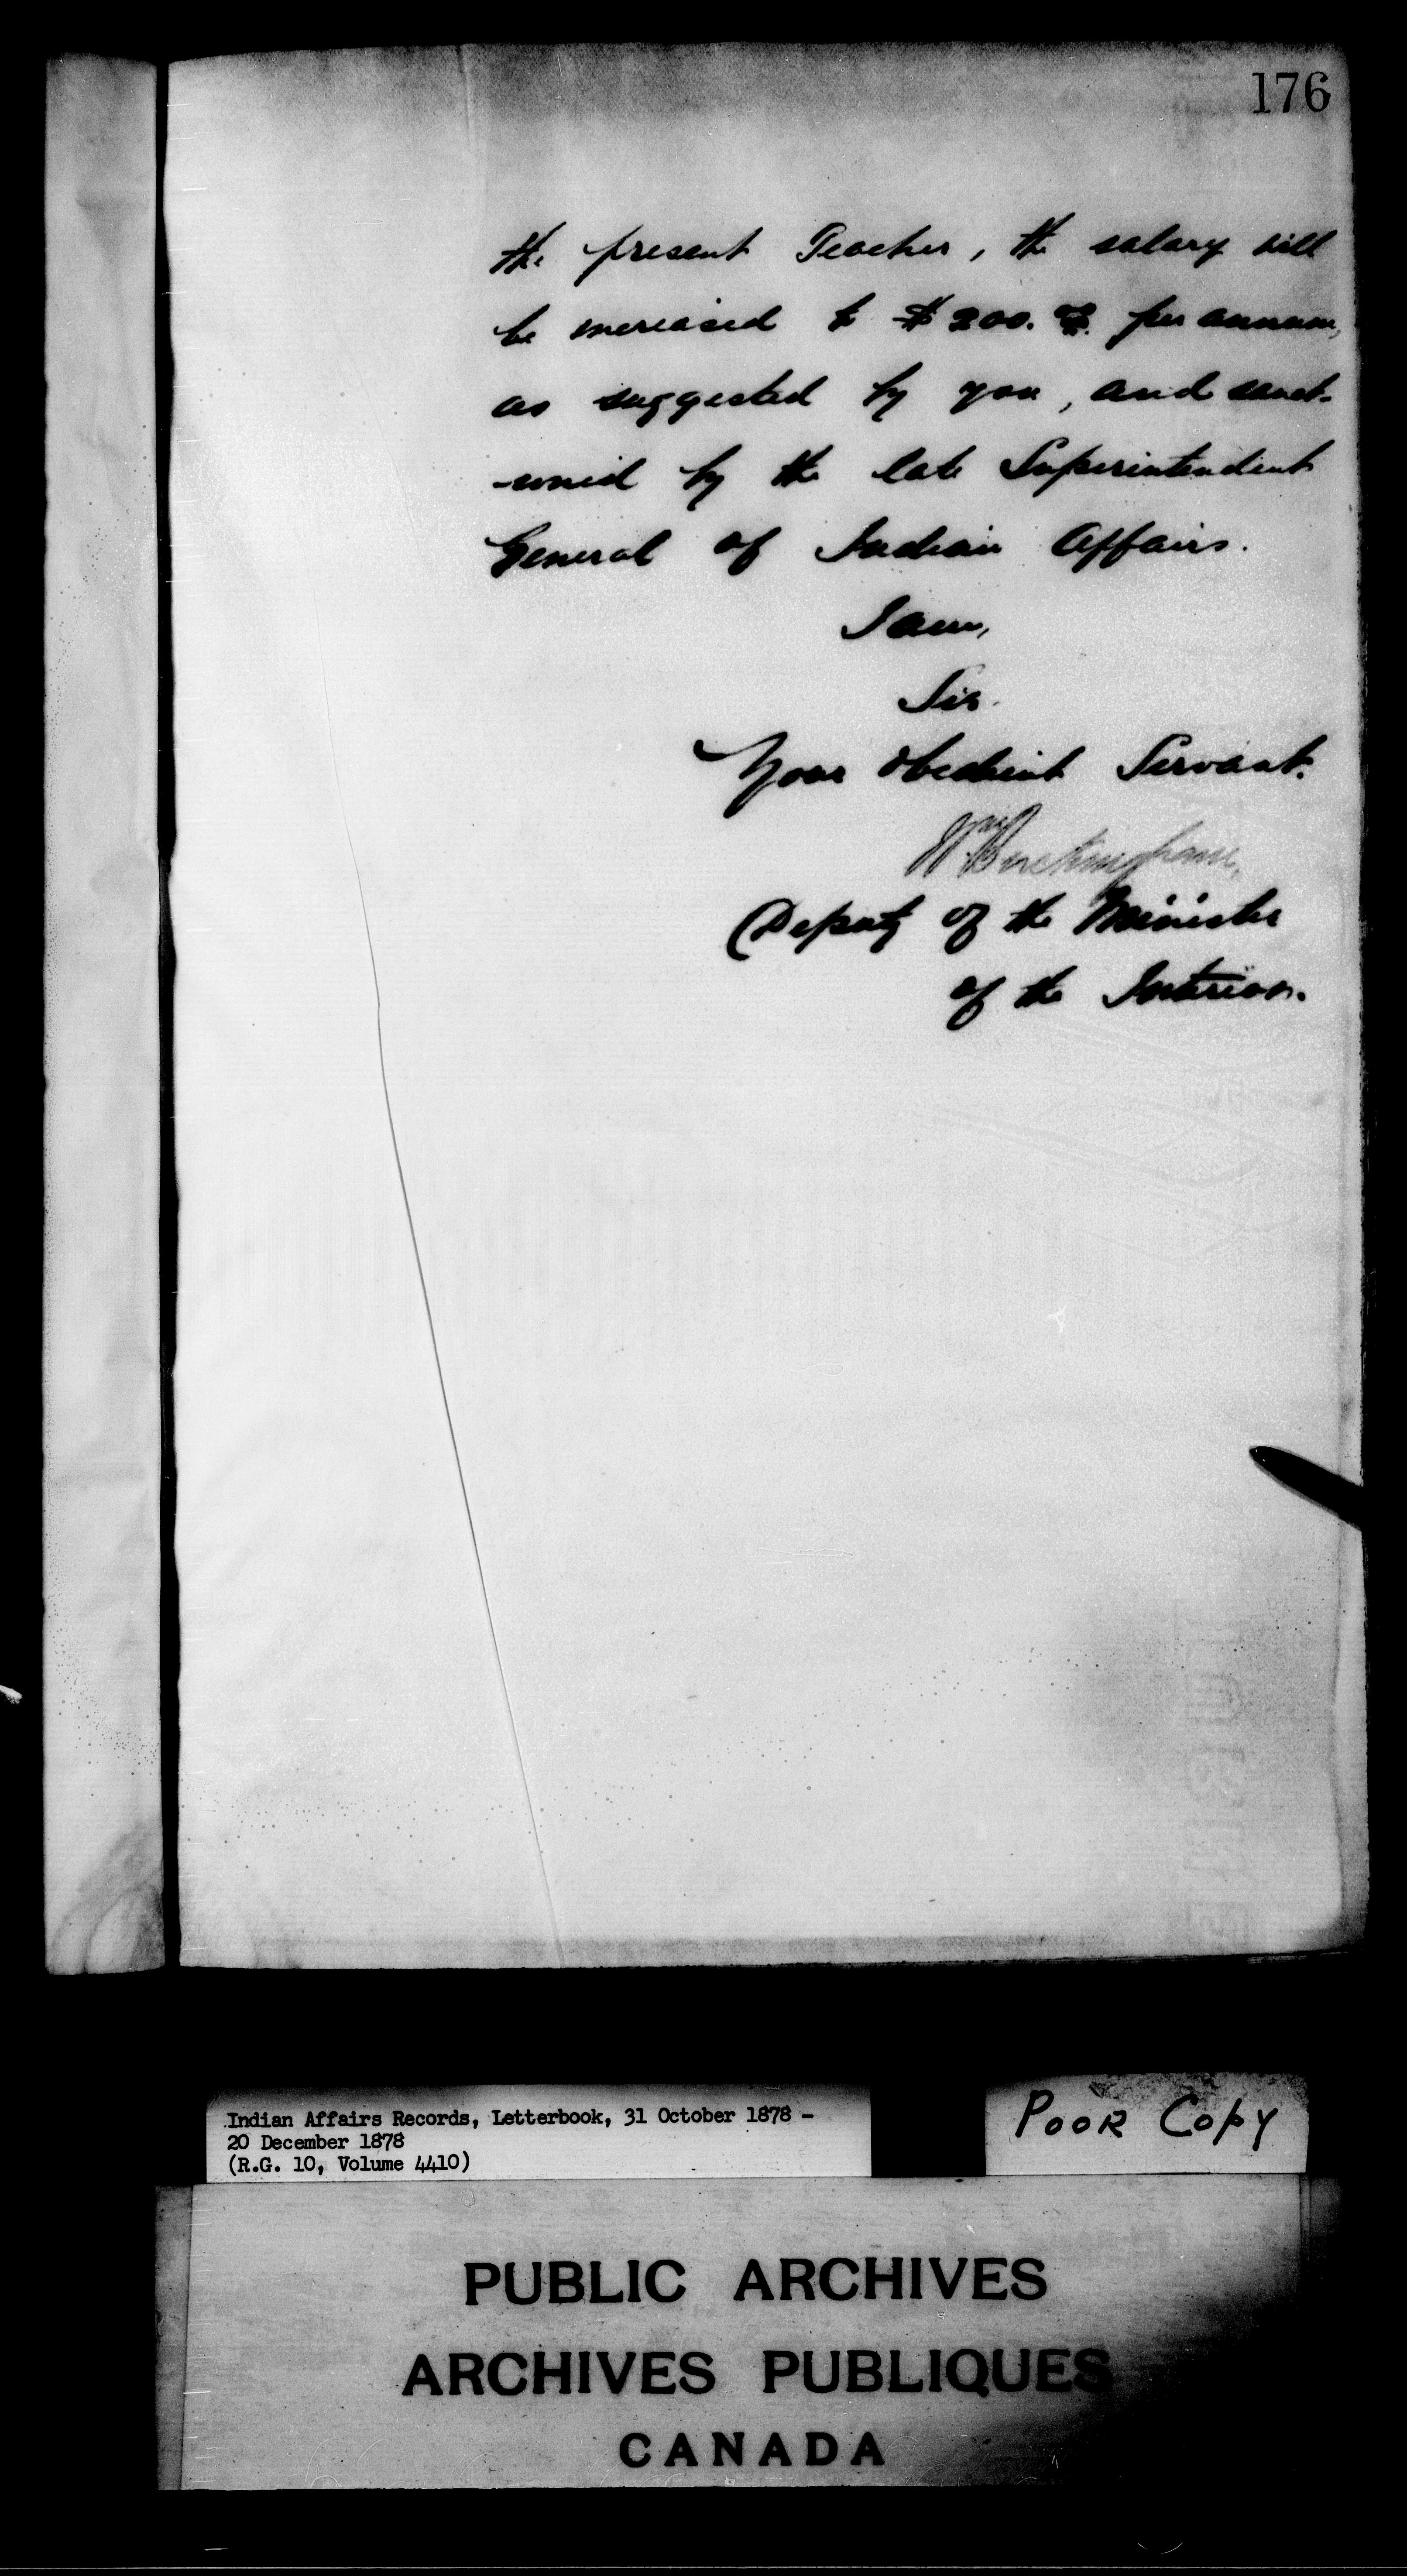 176
the present Teacher, the salary will
be increased to $200.00 per annum,
as suggested by you, and sanct-
-ioned by the late Superintendent
General of Indian Affairs.
I am,
Sir.
Your obedient Servant.
Wm Buckingham,
Deputy of the Minister
of the Interior.
Indian Affairs Records, Letterbook, 31 October 1878 -
20 December 1878
(R.G. 10, Volume 4410)
POOR COPY
PUBLIC ARCHIVES
ARCHIVES PUBLIQUES
CANADA